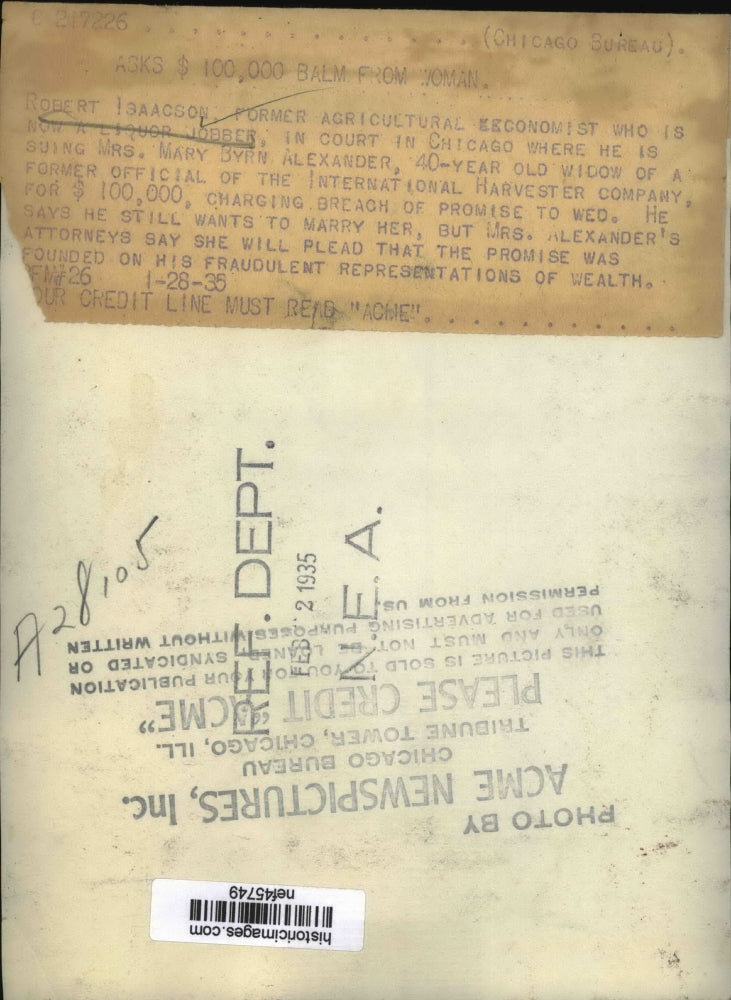 C 217226 (CHICAGO BUREAU).
ASKS $ 100,000 BALM FROM WOMAN.
ROBERT ISAACSON, FORMER AGRICULTURAL EECONOMIST WHO IS
NOW A LIQUOR JOBBER, IN COURT IN CHICAGO WHERE HE IS
SUING MRS. MARY BYRN ALEXANDER, 40-YEAR OLD WIDOW OF A
FORMER OFFICIAL OF THE INTERNATIONAL HARVESTER COMPANY,
FOR $ 100,000, CHARGING BREACH OF PROMISE TO WED. HE
SAYS HE STILL WANTS TO MARRY HER, BUT MRS. ALEXANDER'S
ATTORNEYS SAY SHE WILL PLEAD THAT THE PROMISE WAS
FOUNDED ON HIS FRAUDULENT REPRESENTATIONS OF WEALTH.
1-28-35
OUR CREDIT LINE MUST READ "ACME".
REF. DEPT.
FEB 2 1935
N.E.A.
A28,105
PHOTO BY
ACME NEWSPICTURES, Inc.
CHICAGO BUREAU
TRIBUNE TOWER, CHICAGO, ILL.
PLEASE CREDIT "ACME"
THIS PICTURE IS SOLD TO YOU FOR YOUR PUBLICATION
ONLY AND MUST NOT BE LOANED, SYNDICATED OR
USED FOR ADVERTISING PURPOSES WITHOUT WRITTEN
PERMISSION FROM US.
historicimages.com
nef45749